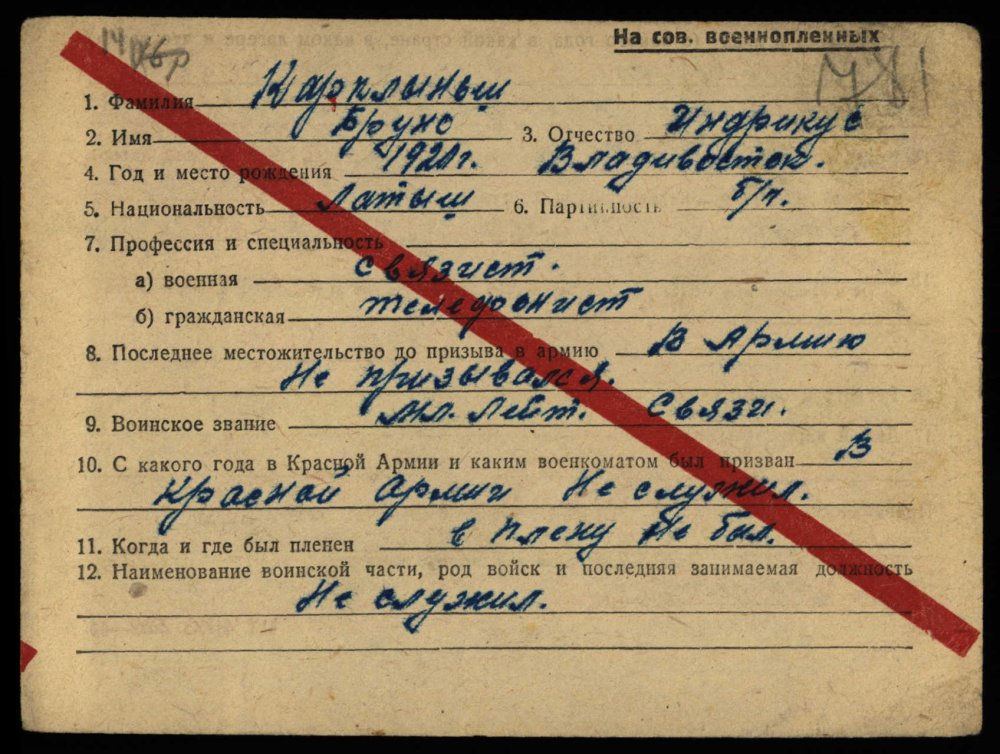 На сов. военнопленных
781
1. Фамилия Карклыньш
2. Имя Бруно 3. Отчество Индрикус
4. Год и место рождения 1920г. Владивосток.
5. Национальность Латыш 6. Партийность б/п.
7. Профессия и специальность
а) военная связист.
б) гражданская телефонист
8. Последнее местожительство до призыва в армию В Армию
Не призывался.
9. Воинское звание Мл. Лейт. связи.
10. С какого года в Красной Армии и каким военкоматом был призван В
Красной Армии Не служил.
11. Когда и где был пленен в плену Не был.
12. Наименование воинской части, род войск и последняя занимаемая должность
Не служил.